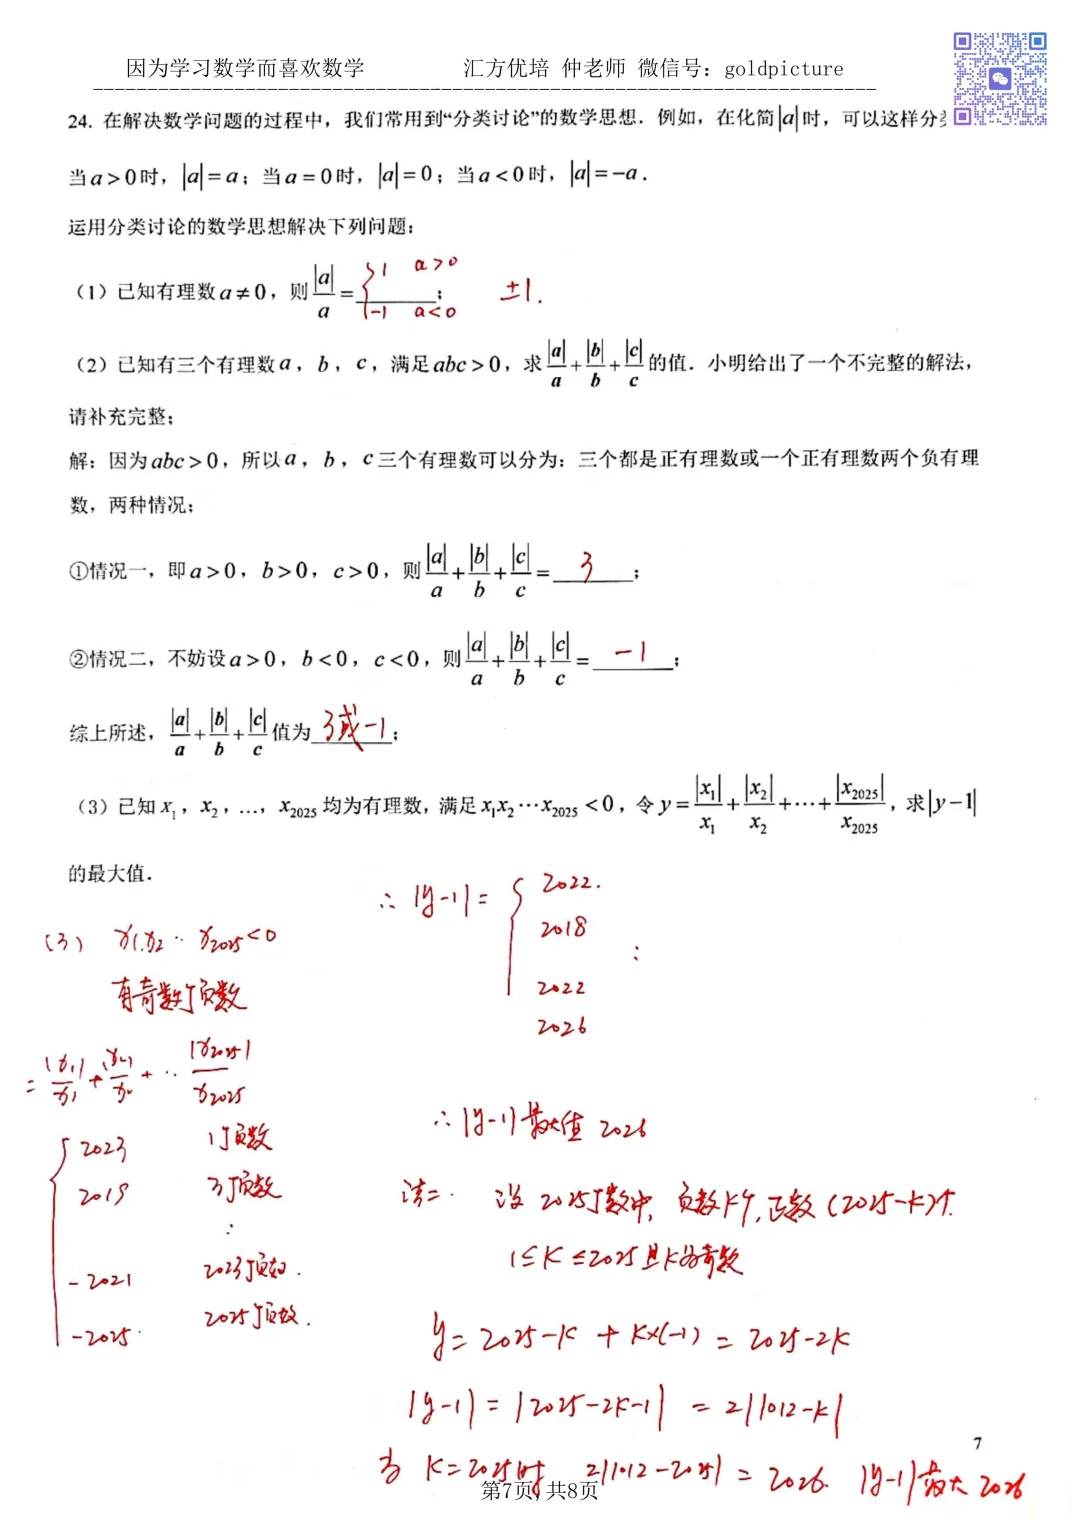 因为学习数学而喜欢数学 汇方优培 仲老师 微信号：goldpicture
24. 在解决数学问题的过程中，我们常用到“分类讨论”的数学思想．例如，在化简|a|时，可以这样分
当a>0时，|a|=a；当a=0时，|a|=0；当a<0时，|a|=-a．
运用分类讨论的数学思想解决下列问题：
（1）已知有理数a≠0，则|a|/a={1 a>0 -1 a<0； ±1.
（2）已知有三个有理数a，b，c，满足abc>0，求|a|/a+|b|/b+|c|/c的值．小明给出了一个不完整的解法，
请补充完整；
解：因为abc>0，所以a，b，c三个有理数可以分为：三个都是正有理数或一个正有理数两个负有理
数，两种情况；
①情况一，即a>0，b>0，c>0，则|a|/a+|b|/b+|c|/c=3；
②情况二，不妨设a>0，b<0，c<0，则|a|/a+|b|/b+|c|/c=-1；
综上所述，|a|/a+|b|/b+|c|/c值为3或-1；
（3）已知x₁，x₂，…，x₂₀₂₅均为有理数，满足x₁x₂⋯x₂₀₂₅<0，令y=|x₁|/x₁+|x₂|/x₂+⋯+|x₂₀₂₅|/x₂₀₂₅，求|y-1|
的最大值．
(3) x₁.x₂⋯x₂₀₂₅<0
有奇数个负数
=|x₁|/x₁+|x₂|/x₂+⋯|x₂₀₂₅|/x₂₀₂₅
{2023 1个负数
2019 3个负数
⋮
-2021 2023个负数.
-2025. 2025个负数.
∴ |y-1|={2022.
2018
⋮
2022
2026
∴|y-1|最大值 2026
法二. 设 2025个数中，负数k个，正数(2025-k)个.
1≤k≤2025且k为奇数
y=2025-k+k×(-1)=2025-2k
|y-1|=|2025-2k-1|=2|1012-k|
当 k=2025时 2|1012-2025|=2026. |y-1|最大 2026
7
第7页，共8页